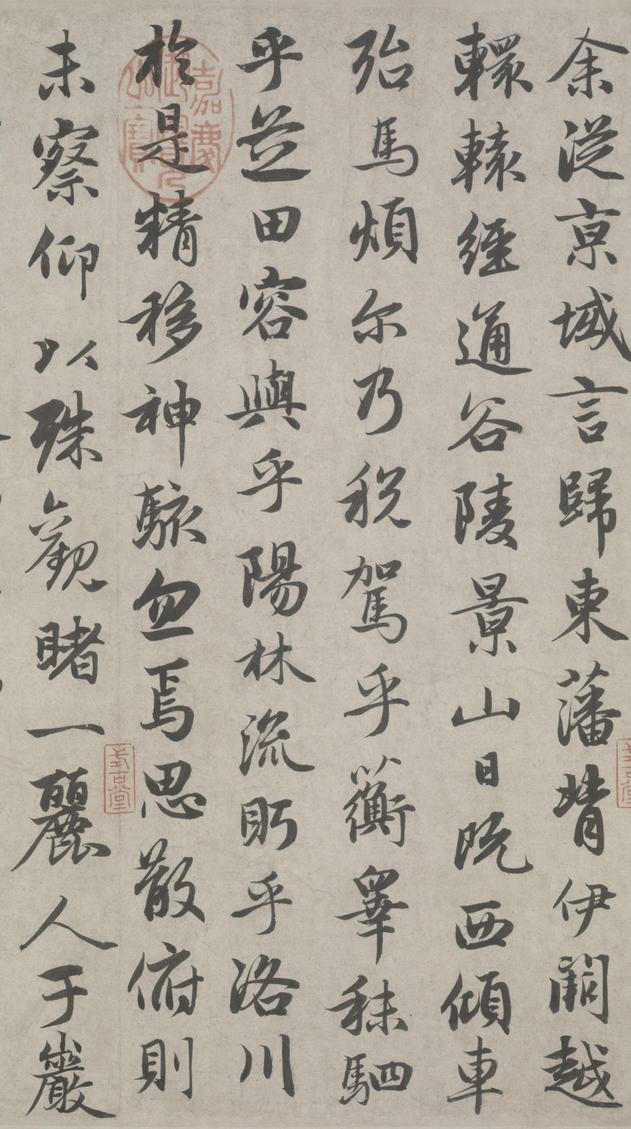 余從京域言歸東藩背伊闕越
轘轅經通谷陵景山日既西傾車
殆馬煩尔乃稅駕乎蘅皋秣駟
乎芝田容與乎陽林流眄乎洛川
於是精移神駭忽焉思散俯則
未察仰以殊觀睹一麗人于巖